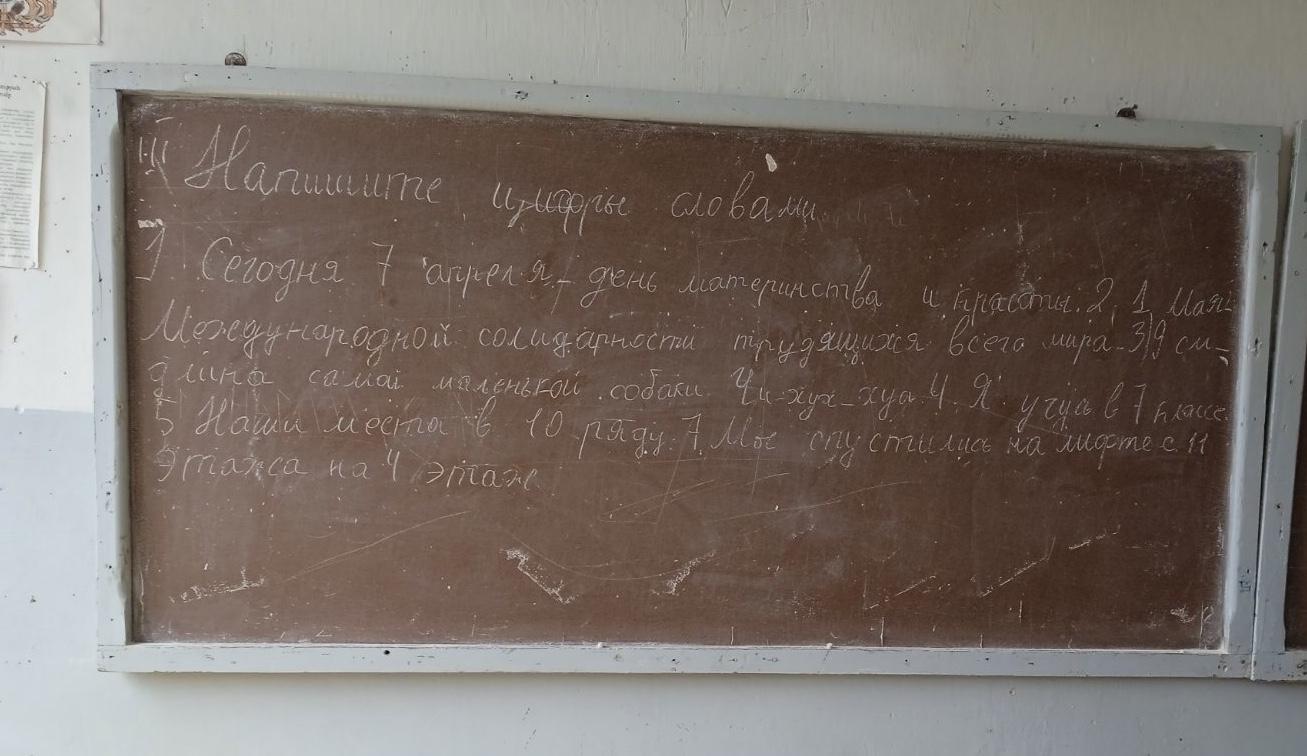 III Напишите цифры словами.
1 Сегодня 7 апреля - день материнства и красоты. 2, 1 Мая-
Международной солидарности трудящихся всего мира. 3) 9 см -
длина самой маленькой собаки Чи-хух-хуа. 4. Я учусь в 7 классе.
5 Наши места в 10 ряду. 7. Мы спустились на лифте с 11
этажа на 4 этаж